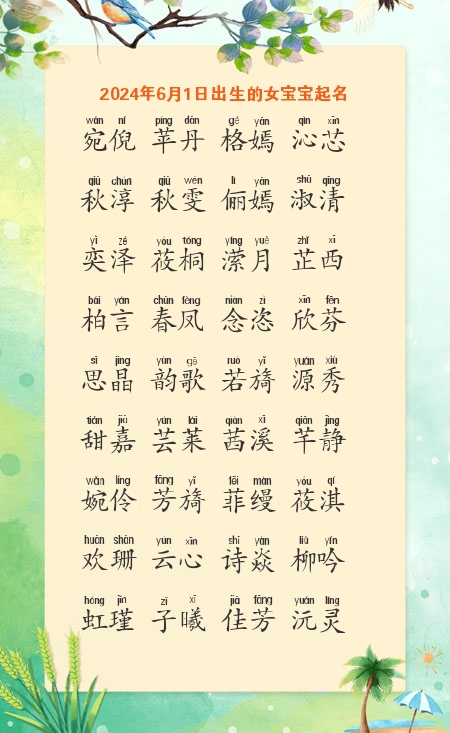 2024年6月1日出生的女宝宝起名
wǎn ní píng dān gé yān qìn xīn
宛倪 苹丹 格嫣 沁芯
qiū chún qiū wén lì yān shū qīng
秋淳 秋雯 俪嫣 淑清
yì zé yóu tóng yíng yuè zhǐ xī
奕泽 莜桐 潆月 芷西
bái yán chūn fèng niàn zī xīn fēn
柏言 春凤 念恣 欣芬
sī jīng yùn gē ruò yǐ yuán xiù
思晶 韵歌 若旖 源秀
tián jiā yún lái qiàn xī qiān jìng
甜嘉 芸莱 茜溪 芊静
wǎn líng fāng yǐ fēi màn yóu qí
婉伶 芳旖 菲缦 莜淇
huān shān yún xīn shī yàn liǔ yín
欢珊 云心 诗焱 柳吟
hóng jǐn zǐ xī jiā fāng yuán líng
虹瑾 子曦 佳芳 沅灵